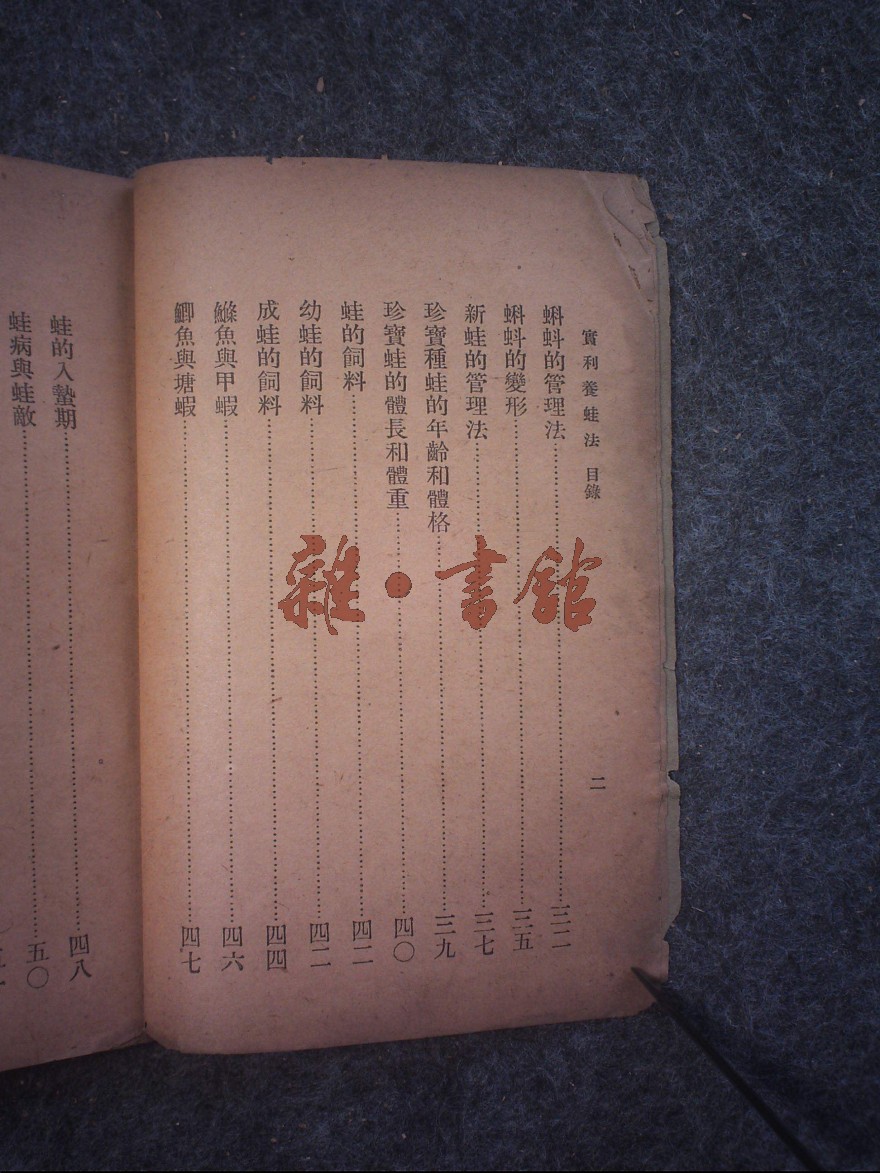 實利養蛙法 目錄 二
蝌蚪的管理法……三二
蝌蚪的變形……三五
新蛙的管理法……三七
珍寶種蛙的年齡和體格……三九
珍寶蛙的體長和體重……四〇
蛙的飼料……四二
幼蛙的飼料……四二
成蛙的飼料……四四
鰷魚與甲蝦……四六
鯽魚與塘蝦……四七
蛙的入蟄期……四八
蛙病與蛙敵……五〇
雜·書館